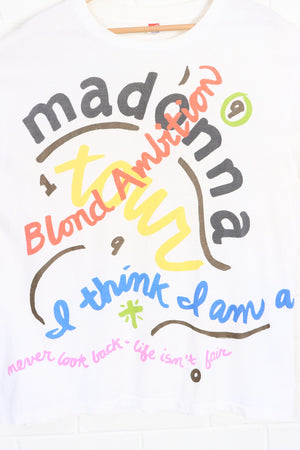 madonna
Blond Ambition
tour
1
9
9
0
I think I am a
never look back - life isn't fair